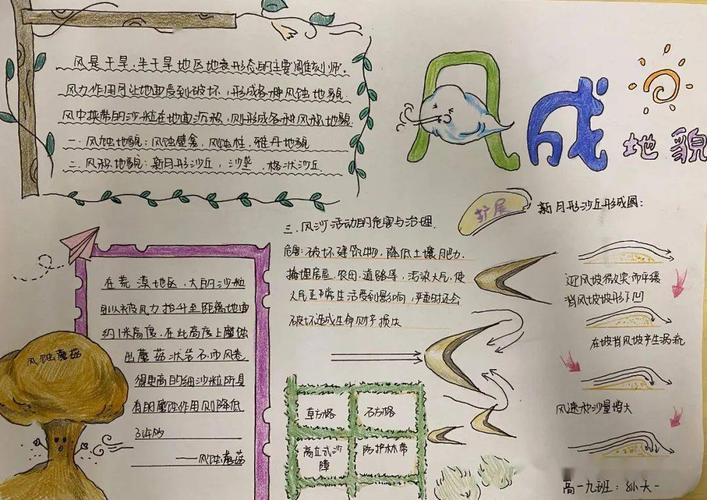 风成地貌
风是干旱、半干旱地区地表形态的主要雕刻师。
风力作用可让地面受到破坏,形成各种风蚀地貌
风中挟带的沙粒在地面沉积,则形成各种风积地貌
一.风蚀地貌:风蚀壁龛,风蚀柱,雅丹地貌
二.风积地貌:新月形沙丘,沙垄,格状沙丘
在荒漠地区,大的沙粒
可以被风力抬升至距离地面
约1米高度,在此高度上
出蘑菇状岩石而风卷
得更高的细沙粒所具
有的磨蚀作用则降低
——风蚀蘑菇
风蚀蘑菇
三.风沙活动的危害与治理
危害:破坏建筑物,降低土壤肥力,
掩埋房屋、农田、道路等,污染大气,使
人民正常生活受到影响,严重时还会
破坏造成生命财产损失
草方格
石方格
高立式沙
障
防护林带
扩展
新月形沙丘形成图:
迎风坡微突而平缓
背风坡坡形下凹
在坡背风坡产生涡流
风速沙量增大
高一九班: